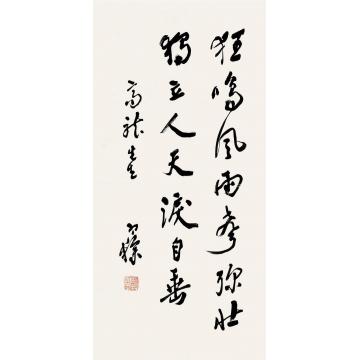 狂鳴風雨聲彌壯
獨立人天淚自垂
高龍先生